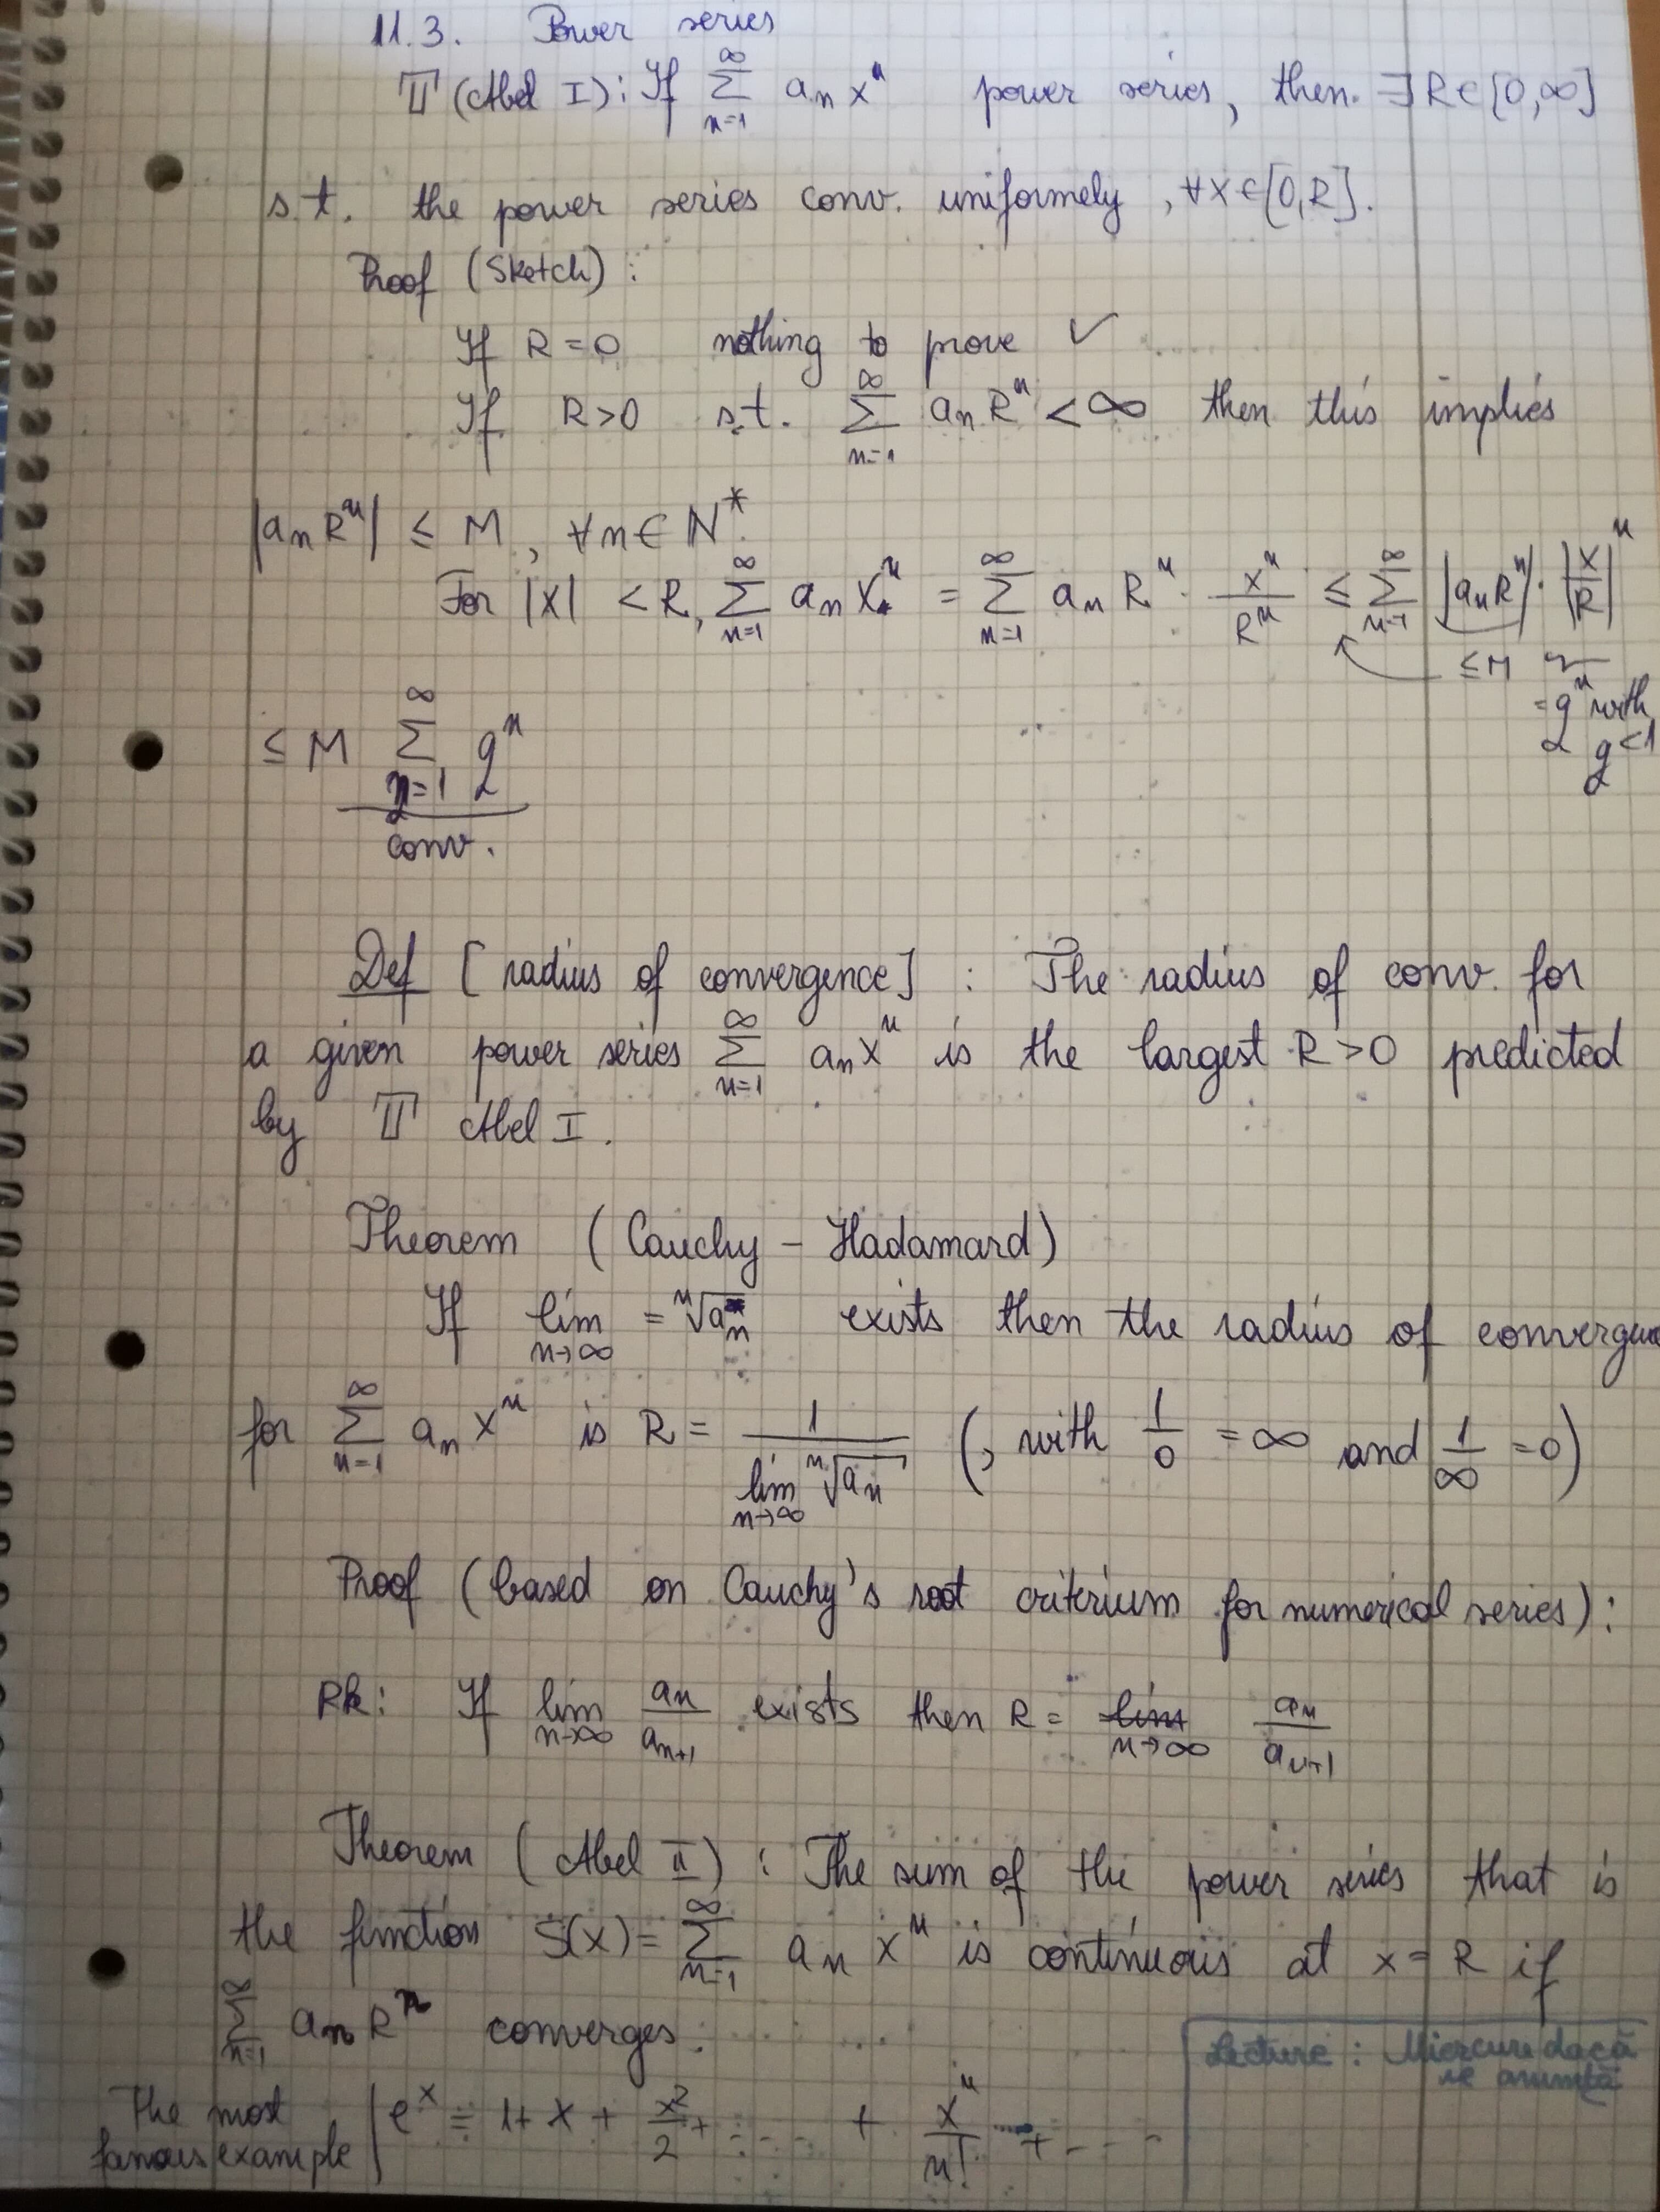 11.3. Power series
T (Abel I): If ∑_{n=1}^{∞} a_n x^n power series, then ∃ R∈[0,∞]
s.t. the power series conv. uniformely, ∀x∈[0,R].
Proof (Sketch):
If R=0 nothing to prove ✓
If R>0 s.t. ∑_{n=1}^{∞} a_n R^n < ∞ then this implies
|a_n R^n| ≤ M, ∀n∈N*.
For |x| < R, ∑_{n=1}^{∞} a_n x^n = ∑_{n=1}^{∞} a_n R^n · x^n/R^n ≤ ∑_{n=1}^{∞} |a_n R^n| · |x/R|^n
≤M = q^n with q<1
≤ M ∑_{n=1}^{∞} q^n
conv.
Def [radius of convergence] : The radius of conv. for
a given power series ∑_{n=1}^{∞} a_n x^n is the largest R>0 predicted
by T Abel I.
Theorem (Cauchy - Hadamard)
If lim_{n→∞} = ⁿ√a_n exists then the radius of convergen
for ∑_{n=1}^{∞} a_n x^n is R = 1/(lim_{n→∞} ⁿ√a_n) (, with 1/0 = ∞ and 1/∞ = 0)
Proof (based on Cauchy's root criterium for numerical series):
Rk: If lim_{n→∞} a_n/a_{n+1} exists then R = lim_{n→∞} a_n/a_{n+1}
Theorem (Abel II) : The sum of the power series that is
the function S(x) = ∑_{n=1}^{∞} a_n x^n is continuous at x = R if
∑_{n=1}^{∞} a_n R^n converges.
Lecture : Miercuri dacă
se anunță
The most
famous example | e^x = 1 + x + x²/2 + .... + x^n/n! + ....